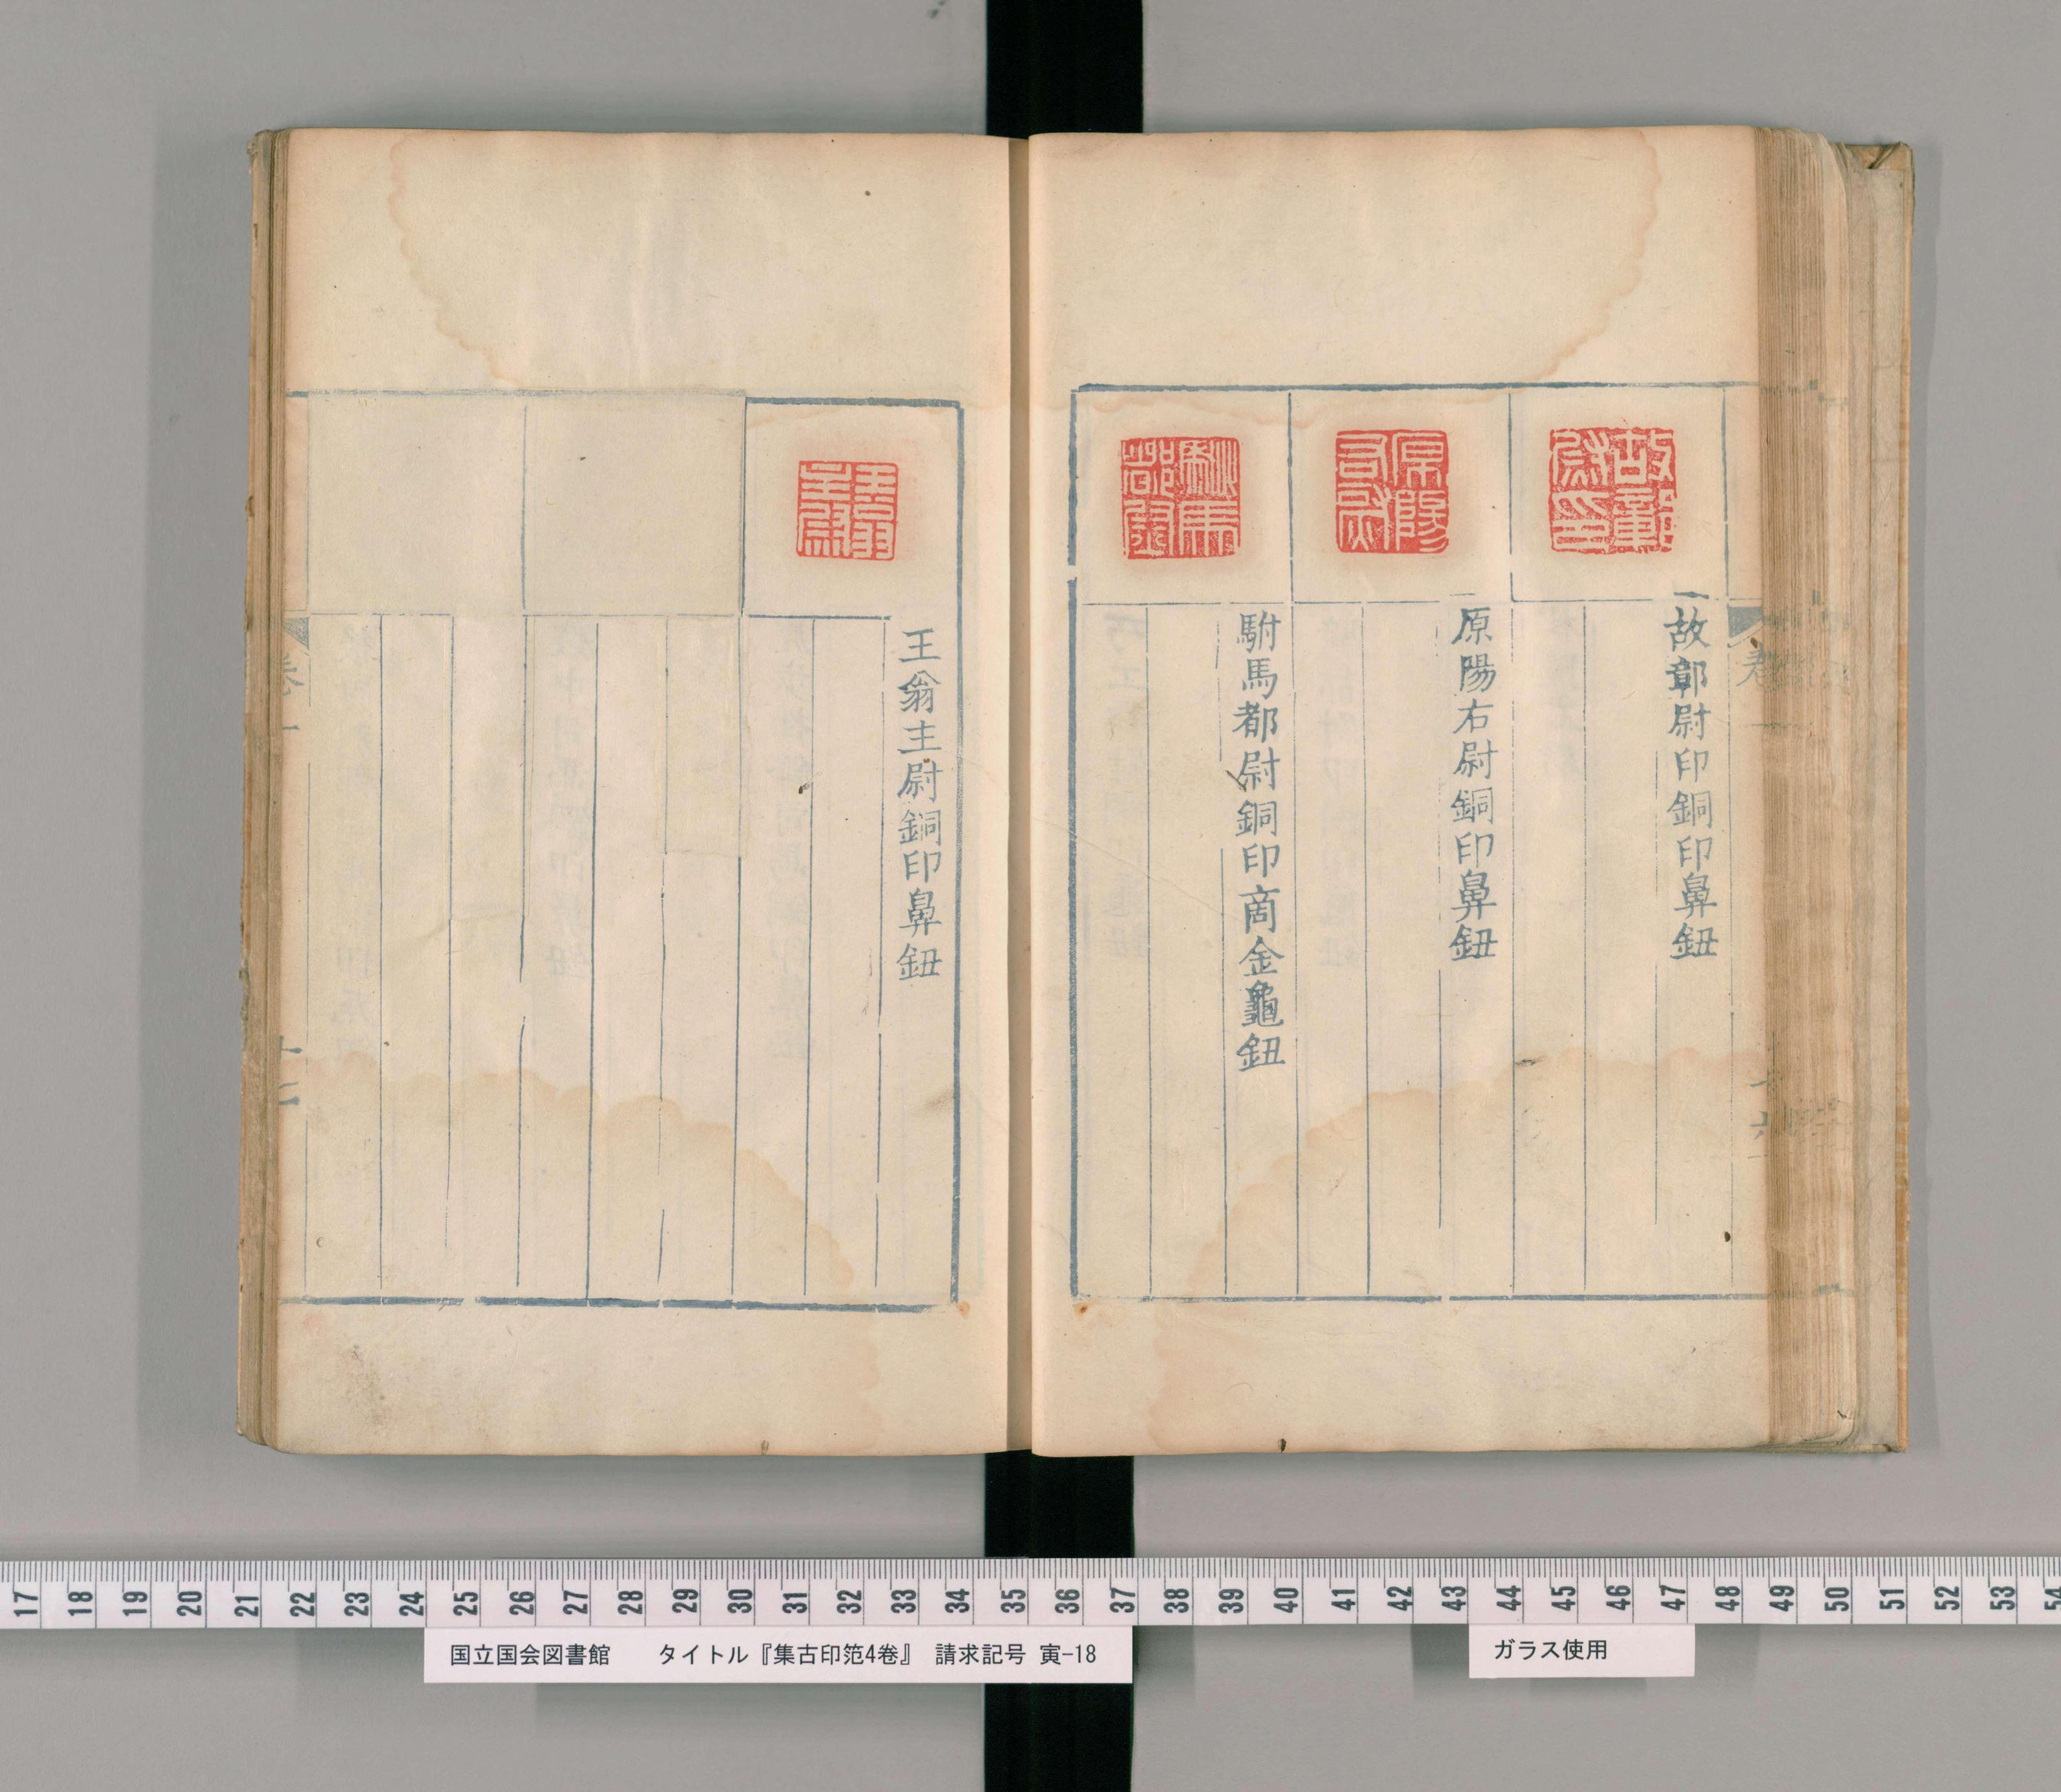 故鄣尉印銅印鼻鈕
原陽右尉銅印鼻鈕
駙馬都尉銅印商金龜鈕
王翁主尉銅印鼻鈕
卷一
十二
17 18 19 20 21 22 23 24 25 26 27 28 29 30 31 32 33 34 35 36 37 38 39 40 41 42 43 44 45 46 47 48 49 50 51 52 53 54
国立国会図書館 タイトル『集古印笵4巻』 請求記号 寅-18
ガラス使用